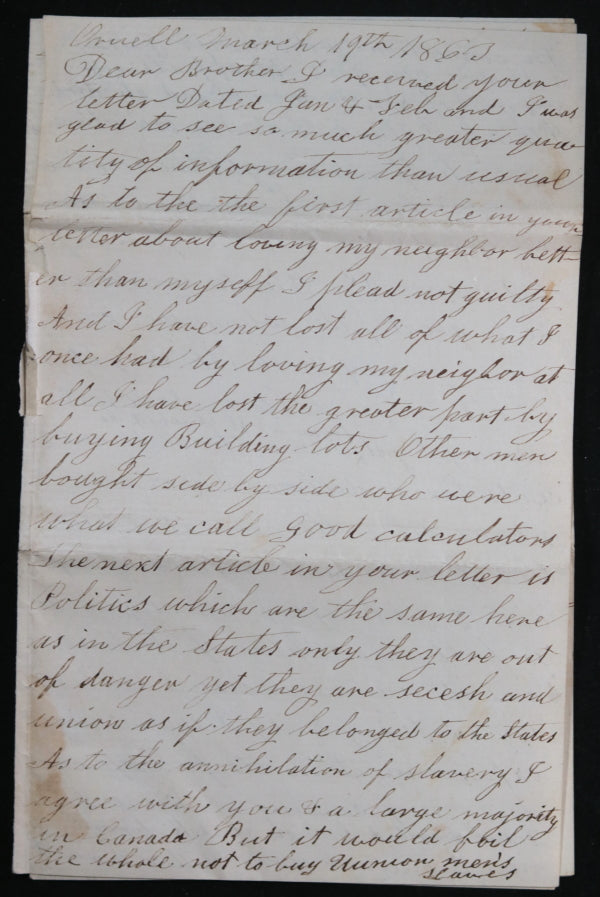 Orwell March 19th 1863
Dear Brother I received your
letter Dated Jan & Feb and I was
glad to see so much greater quan
tity of information than usual
As to the the first article in your
letter about loving my neighbor bett-
er than myself I plead not guilty
And I have not lost all of what I
once had by loving my neigbor at
all I have lost the greater part by
buying Building lots Other men
bought side by side who were
what we call good calculators
The next article in your letter is
Politics which are the same here
as in the States only they are out
of danger yet they are secesh and
union as if they belonged to the States
As to the annihilation of slavery I
agree with you & a large majority
in Canada But it would foil
the whole not to buy Uunion men's
slaves